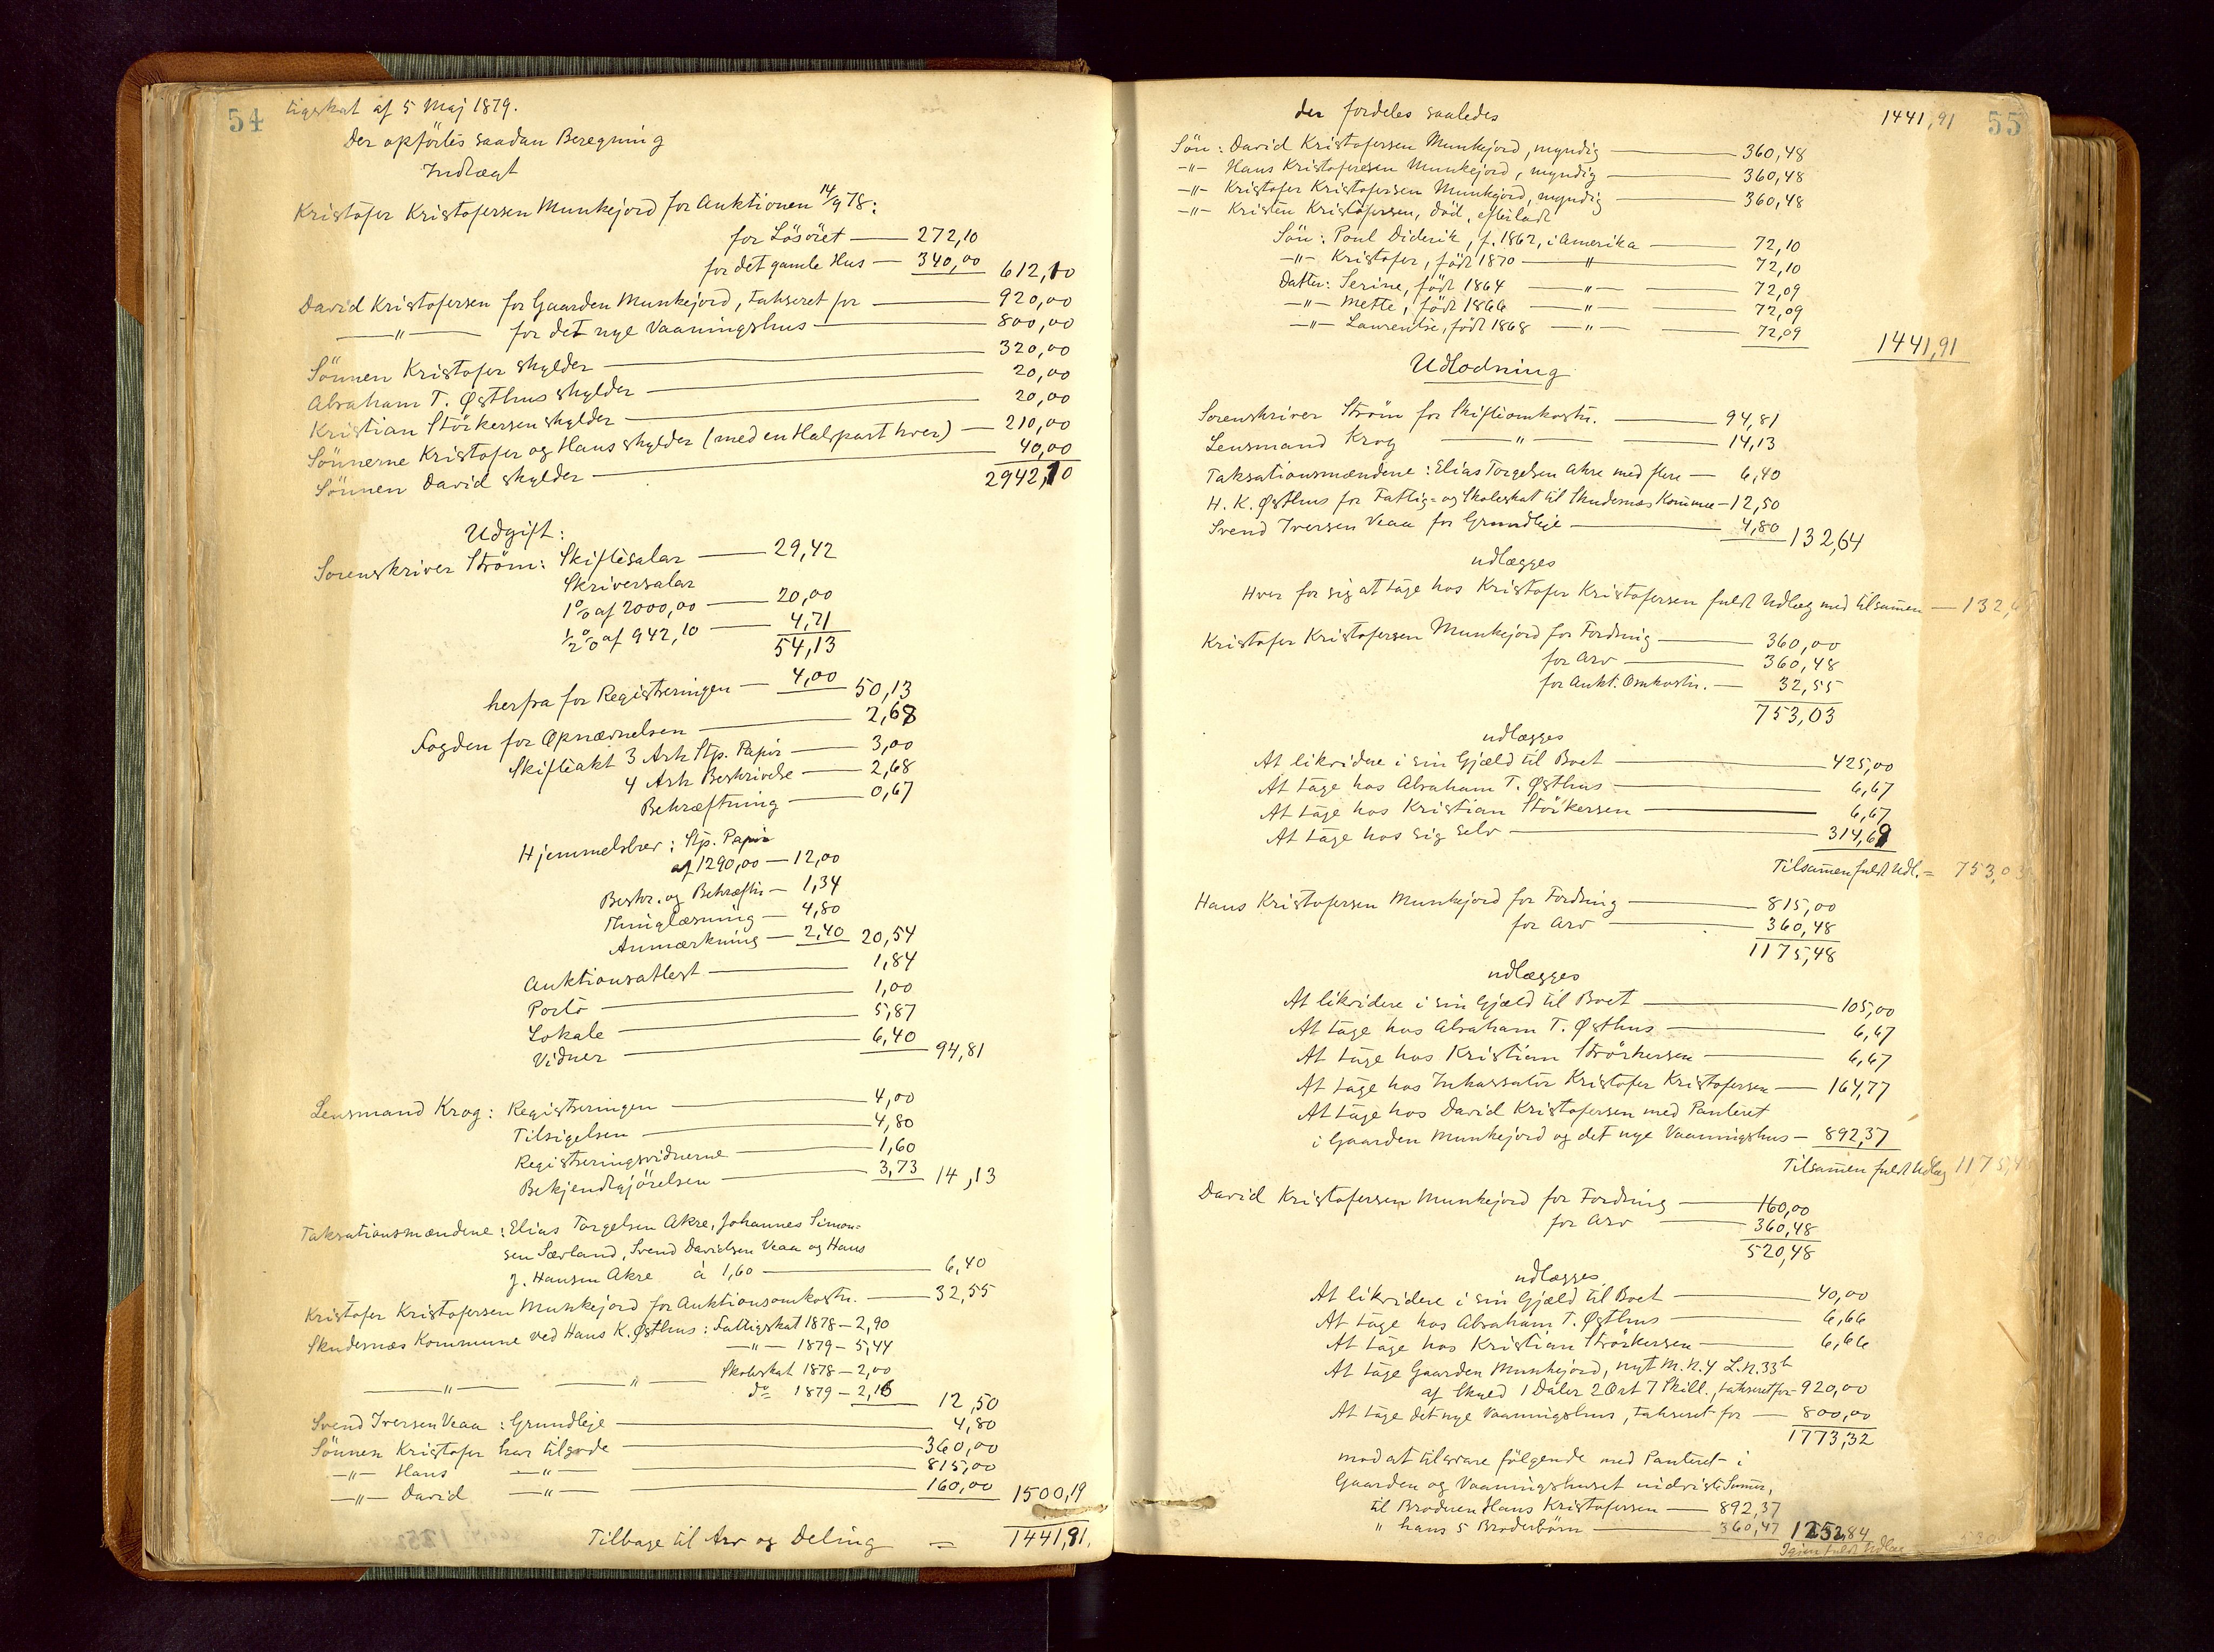 54
tigskat af 5 Maj 1879.
Der opförtes saadan Beregning
Indtægt
Kristofer Kristofersen Munkejord for Auktionen 14/9 78:
for Lösöret — 272,10
for det gamle Hus — 340,00 612,10
David Kristofersen for Gaarden Munkejord, takseret for — 920,00
—"— for det nye Vaaningshus — 800,00
Sönnen Kristofer skylder — 320,00
Abraham T. Østhus skylder — 20,00
Kristian Störkersen skylder — 20,00
Sönnerne Kristofer og Hans skylder (med en Halvpart hver) — 210,00
Sönnen David skylder — 40,00
2942,10
Udgift:
Sorenskriver Ström: Skiftesalar — 29,42
Skriversalar
1% af 2000,00 — 20,00
½% af 942,10 — 4,71
54,13
herfra for Registreringen — 4,00 50,13
Fogden for Opnævnelsen — 2,68
Skifteakt 3 Ark Stp. Papir — 3,00
4 Ark Beskrivelse — 2,68
Bekræftning — 0,67
Hjemmelsbrev: Stp. Papir
af 1290,00 — 12,00
Beskr. og Bekræftn — 1,34
Thinglæsning — 4,80
Anmærkning — 2,40 20,54
Auktionsattest — 1,84
Porto — 1,00
Lokale — 5,87
Vidner — 6,40
94,81
Lensmand Krog: Registreringen — 4,00
Tilsigelsen — 4,80
Registreringsvidnerne — 1,60
Bekjendtgjörelsen — 3,73 14,13
Taksationsmændene: Elias Torgelsen Akre, Johannes Simon=
sen Særland, Svend Davidsen Veaa og Hans
J. Hansen Akre à 1,60 — 6,40
Kristofer Kristofersen Munkejord for Auktionsomkostn. — 32,55
Skudesnæs Kommune ved Hans K. Østhus: Fattigskat 1878 — 2,90
—"— 1879 — 5,44
—"— —"— Skoleskat 1878 — 2,00
do 1879 — 2,16 12,50
Svend Iversen Veaa: Grundleje — 4,80
Sönnen Kristofer har tilgode — 360,00
—"— Hans —"— — 815,00
—"— David —"— — 160,00 1500,19
Tilbage til Arv og Deling = 1441,91.
55
der fordeles saaledes 1441,91
Sön: David Kristofersen Munkejord, myndig — 360,48
—"— Hans Kristofersen Munkejord, myndig — 360,48
—"— Kristofer Kristofersen Munkejord, myndig — 360,48
—"— Kristen Kristofersen, död, efterladt
Sön: Poul Diderik, f. 1862, i Amerika — 72,10
—"— Kristofer, födt 1870 — " — 72,10
Datter: Serine, födt 1864 — " — 72,09
—"— Mette, födt 1866 — " — 72,09
—"— Laurentse, födt 1868 — " — 72,09
1441,91
Udlodning
Sorenskriver Ström for Skifteomkostn. — 94,81
Lensmand Krog — " — 14,13
Taksationsmændene: Elias Torgelsen Akre med flere — 6,40
H. K. Østhus for Fattig= og Skoleskat til Skudesnæs Kommune — 12,50
Svend Iversen Veaa for Grundleje — 4,80 132,64
udlægges
Hver for sig at tage hos Kristofer Kristofersen fuldt Udlæg med tilsammen — 132,6
Kristofer Kristofersen Munkejord for Fordring — 360,00
for Arv — 360,48
for Aukt. Omkostn. — 32,55
753,03
udlægges
At likvidere i sin Gjæld til Boet — 425,00
At tage hos Abraham T. Østhus — 6,67
At tage hos Kristian Störkersen — 6,67
At tage hos sig selv — 314,69
Tilsammen fuldt Udl. = 753,03
Hans Kristofersen Munkejord for Fordring — 815,00
for Arv — 360,48
1175,48
udlægges
At likvidere i sin Gjæld til Boet — 105,00
At tage hos Abraham T. Østhus — 6,67
At tage hos Kristian Störkersen — 6,67
At tage hos Inkassator Kristofer Kristofersen — 164,77
At tage hos David Kristofersen med Panteret
i Gaarden Munkejord og det nye Vaaningshus — 892,37
Tilsammen fuldt Udlæg 1175,4
David Kristofersen Munkejord for Fordring — 160,00
for Arv — 360,48
520,48
udlægges
At likvidere i sin Gjæld til Boet — 40,00
At tage hos Abraham T. Østhus — 6,66
At tage hos Kristian Störkersen — 6,66
At tage Gaarden Munkejord, nyt M.N. 4 L.N. 33b
af Skyld 1 Daler 2 Ort 7 Skill., takseret for 920,00
At tage det nye Vaaningshus, takseret for — 800,00
1773,32
mod at tilsvare fölgende med Panteret i
Gaarden og Vaaningshuset
til Broderen Hans Kristofersen — 892,37
" hans 5 Broderbörn — 360,47 1252,84
Igjen fuldt Udlæg